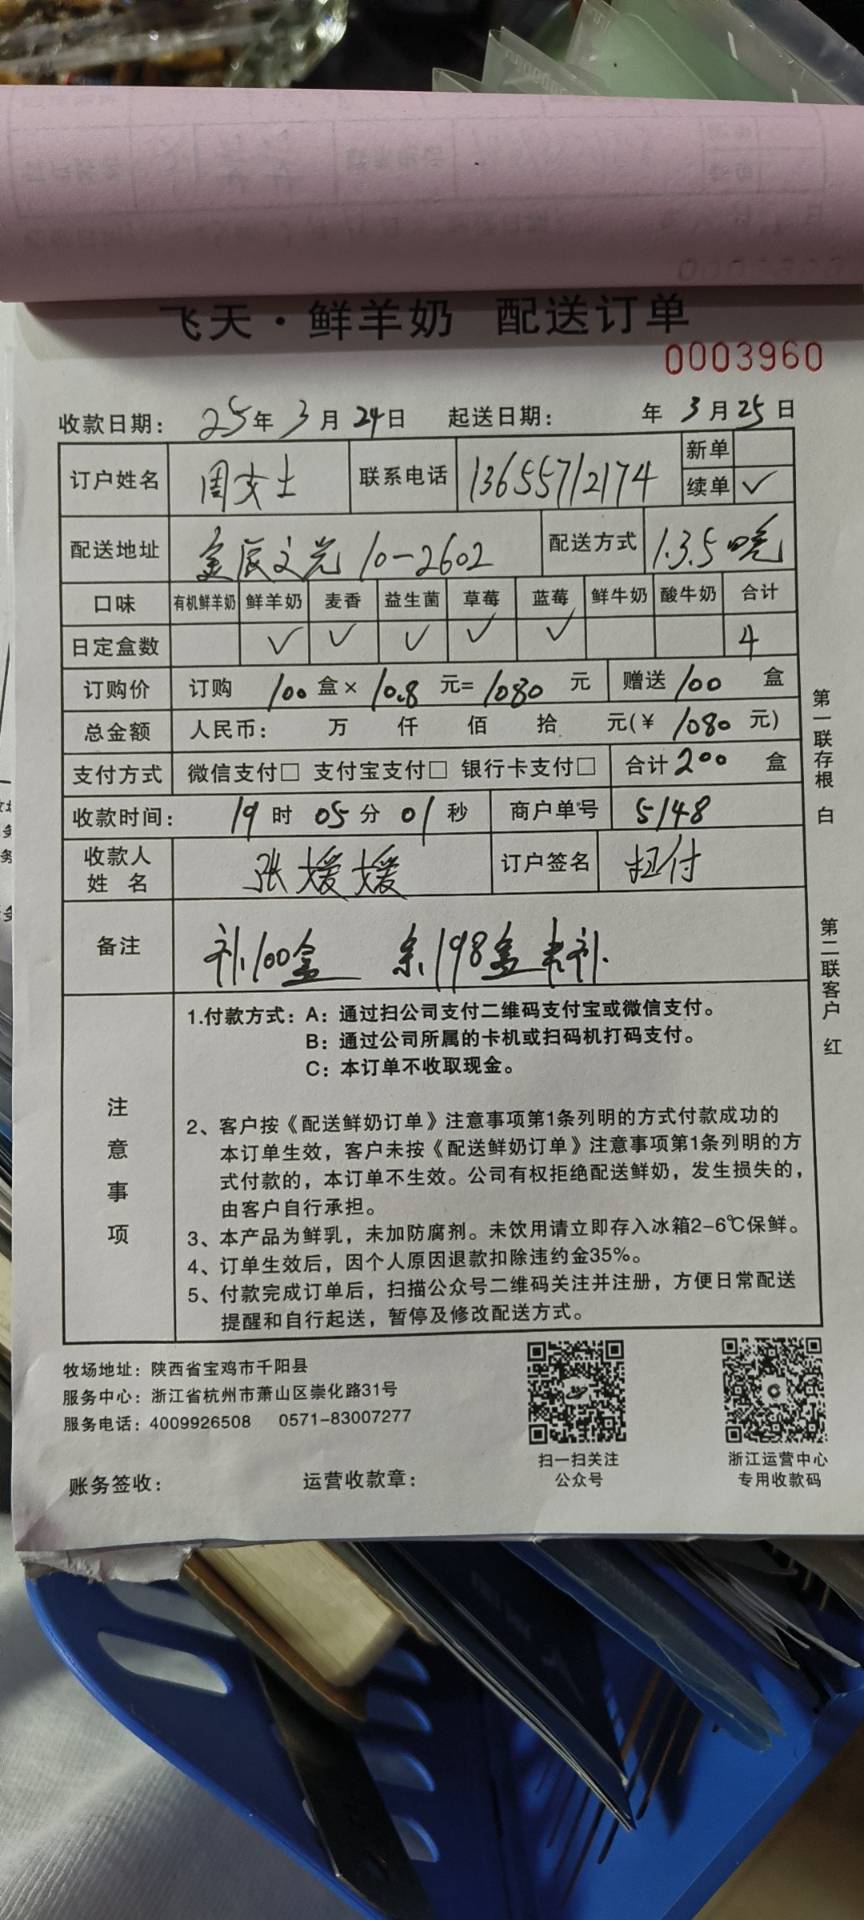 飞天·鲜羊奶 配送订单
0003960
收款日期： 25年 3月 24日 起送日期： 年 3月 25日
订户姓名 周女士 联系电话 13655712174 新单
续单 ✓
配送地址 金辰之光 10-2602 配送方式 1.3.5晚
口味 有机鲜羊奶 鲜羊奶 麦香 益生菌 草莓 蓝莓 鲜牛奶 酸牛奶 合计
日定盒数 ✓ ✓ ✓ ✓ ✓ 4
订购价 订购 100 盒× 10.8 元= 1080 元 赠送 100 盒
总金额 人民币： 万 仟 佰 拾 元(¥ 1080 元)
支付方式 微信支付□ 支付宝支付□ 银行卡支付□ 合计 200 盒
收款时间： 19时 05分 01秒 商户单号 5148
收款人姓名 张媛媛 订户签名 扫付
备注 补100盒 余198盒未补.
注意事项
1.付款方式：A：通过扫公司支付二维码支付宝或微信支付。
B：通过公司所属的卡机或扫码机打码支付。
C：本订单不收取现金。
2、客户按《配送鲜奶订单》注意事项第1条列明的方式付款成功的
本订单生效，客户未按《配送鲜奶订单》注意事项第1条列明的方
式付款的，本订单不生效。公司有权拒绝配送鲜奶，发生损失的，
由客户自行承担。
3、本产品为鲜乳，未加防腐剂。未饮用请立即存入冰箱2-6℃保鲜。
4、订单生效后，因个人原因退款扣除违约金35%。
5、付款完成订单后，扫描公众号二维码关注并注册，方便日常配送
提醒和自行起送，暂停及修改配送方式。
第一联存根 白
第二联客户 红
牧场地址：陕西省宝鸡市千阳县
服务中心：浙江省杭州市萧山区崇化路31号
服务电话：4009926508 0571-83007277
扫一扫关注
公众号
浙江运营中心
专用收款码
账务签收： 运营收款章：